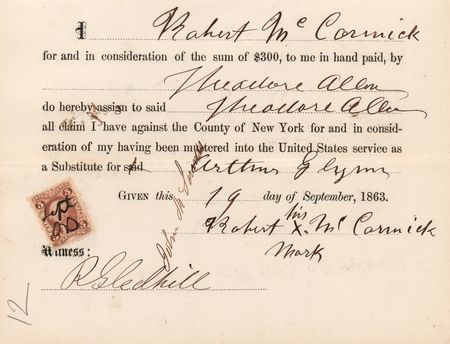 I Robert Mc Cormick
for and in consideration of the sum of $300, to me in hand paid, by
Theodore Allen
do hereby assign to said Theodore Allen
all claim I have against the County of New York for and in consid-
eration of my having been mustered into the United States service as
a Substitute for said Arthur Glynn
GIVEN this 19 day of September, 1863.
Robert his x Mc Cormick
Mark
Witness:
12